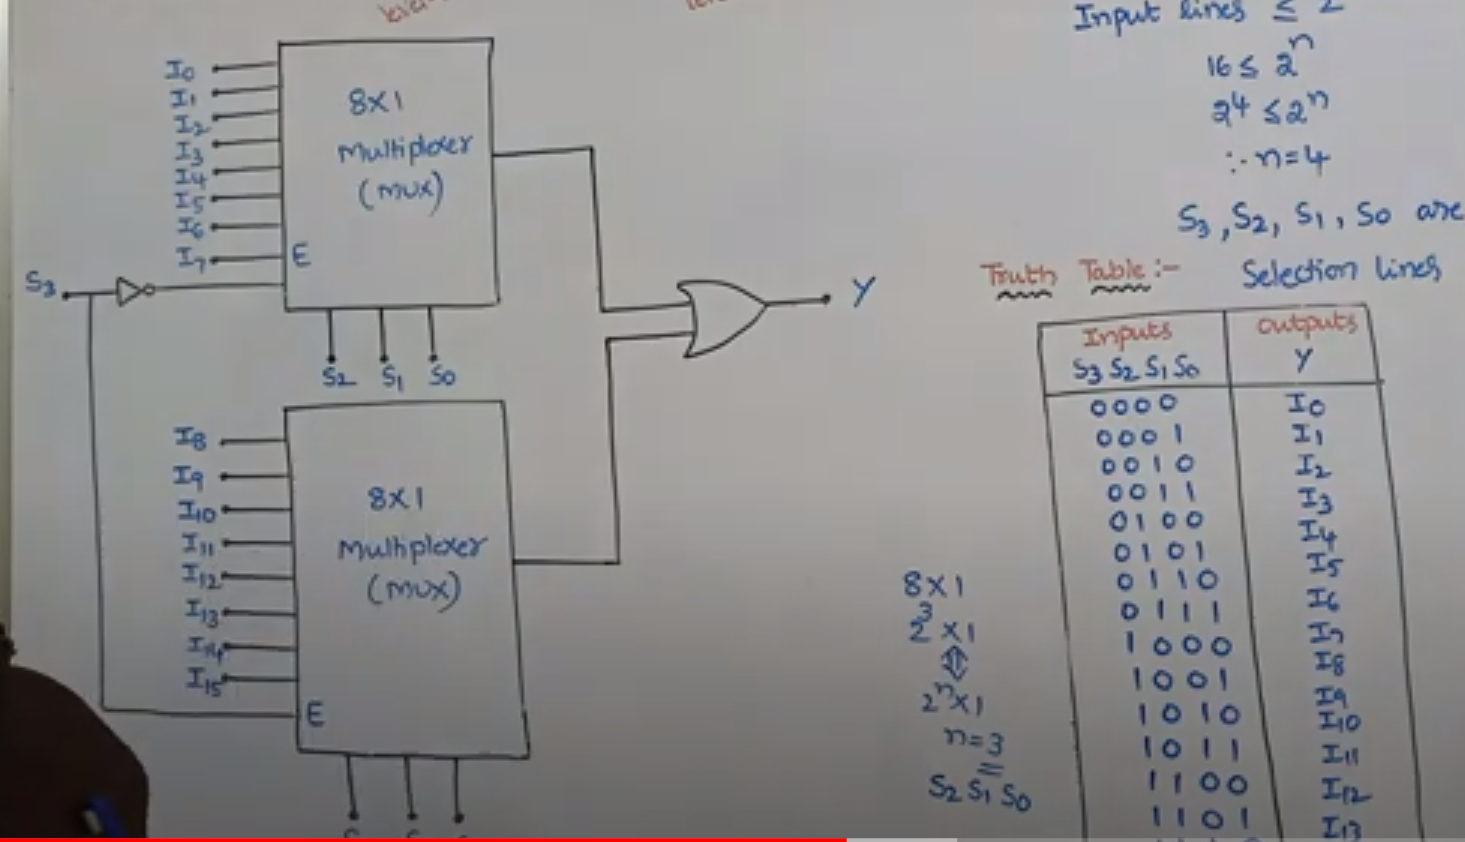 Input lines ≤ 2
16 ≤ 2ⁿ
2⁴ ≤ 2ⁿ
∴ n=4
S₃, S₂, S₁, S₀ are
Selection lines
I₀
I₁
I₂
I₃
I₄
I₅
I₆
I₇
8×1
Multiplexer
(MUX)
E
S₃
S₂ S₁ S₀
Y
I₈
I₉
I₁₀
I₁₁
I₁₂
I₁₃
I₁₄
I₁₅
8×1
Multiplexer
(MUX)
E
8×1
2³×1
⇕
2ⁿ×1
n=3
S₂ S₁ S₀
Truth Table:-
Inputs outputs
S₃ S₂ S₁ S₀ Y
0000 I₀
0001 I₁
0010 I₂
0011 I₃
0100 I₄
0101 I₅
0110 I₆
0111 I₇
1000 I₈
1001 I₉
1010 I₁₀
1011 I₁₁
1100 I₁₂
1101 I₁₃